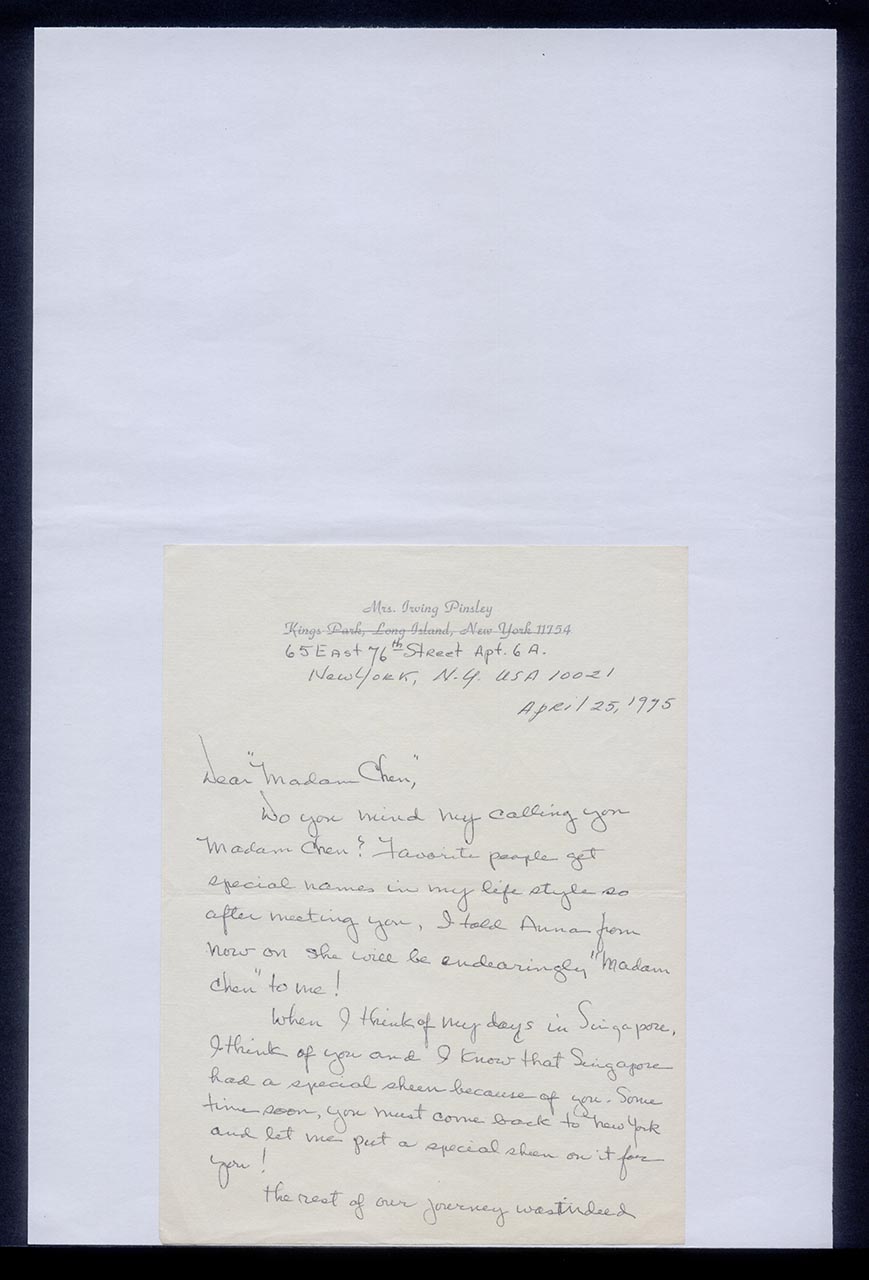 Mrs. Irving Pinsley
Kings Park, Long Island, New York 11754
65 East 76th Street Apt. 6A.
New York, N.Y. USA 10021
April 25, 1975
Dear "Madam Chen",
Do you mind my calling you
Madam Chen? Favorite people get
special names in my life style so
after meeting you, I told Anna from
now on she will be endearingly "Madam
Chen" to me!
When I think of my days in Singapore,
I think of you and I know that Singapore
had a special sheen because of you. Some
time soon, you must come back to New York
and let me put a special sheen on it for
you!
The rest of our journey was indeed